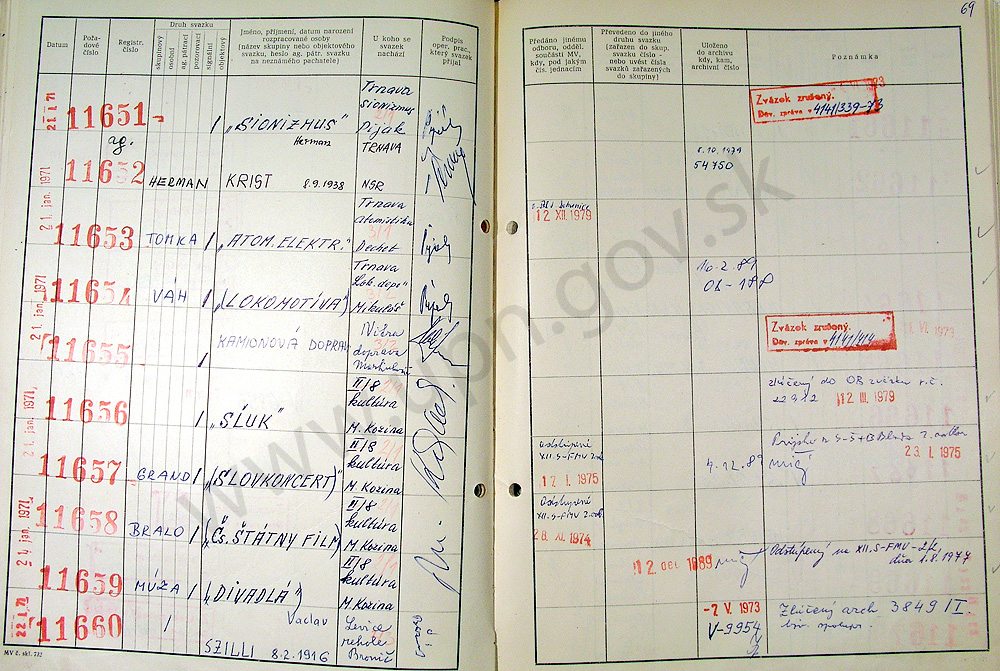 69
Datum
Pořa-
dové
číslo
Registr.
číslo
Druh svazku
skupinový
osobní
ag. pátrací
pozorovací
signální
objektový
Jméno, příjmení, datum narození
rozpracované osoby
(název skupiny nebo objektového
svazku, heslo ag. pátr. svazku
na neznámého pachatele)
U koho se
svazek
nachází
Podpis
oper. prac.,
který svazek
přijal
Předáno jinému
odboru, odděl.
součásti MV,
kdy, pod jakým
čís. jednacím
Převedeno do jiného
druhu svazku
(zařazen do skup.
svazku číslo –
nebo uvést čísla
svazků zařazených
do skupiny)
Uloženo
do archivu
kdy, kam,
archivní číslo
Poznámka
21. I. 71
11651
ag.
/ "SIONIZMUS"
Herman
Trnava
sionizmus
2/1
Pijak
TRNAVA
Zväzok zrušený.
Dov. zpráva v 4141/339-73
21. jan. 1971
11652
HERMAN
KRIST 8.9.1938
NSR
8.10.1979
54750
11653
TOMKA / "ATOM.ELEKTR."
Trnava
atomistika
3/1
Dechet
12 XII. 1979
21. jan. 1971
11654
VÁH / "(LOKOMOTÍVA")
Trnava
Lok. depo
Mikuláš
10.2.89
OB-188
21. jan. 1971
11655
/ KAMIONOVÁ DOPRAV.
Nitra
doprava
3/2
Zväzok zrušený.
Dov. zpráva v 4141/414
VI. 1979
11656
/ "SĽUK"
II/8
kultúra
M. Kozina
zlúčený do OB zväzku r.č.
22912 12 III. 1979
21. jan. 1971
11657
GRAND / "(SLOVKONCERT)
II/8
kultúra
M. Kozina
odstúpené
XII.S-FMV 2.odb
17 I. 1975
4.12.89
23. I. 1975
11658
BRALO / "(Čs. ŠTÁTNY FILM)
II/8
kultúra
M. Kozina
Odstúpené
XII.S-FMV 2.odb
28 XI. 1974
21. jan. 1971
11659
MÚZA / "(DIVADLÁ")
II/8
kultúra
M. Kozina
12. dec. 1989
Odstúpený na XII.S-FMV-2/2,
dňa 1.8.1977
22. I. 71
11660
/ Vaclav
SZILLI 8.2.1916
Levice
Bronič
-7 V. 1973
V-9954
Zlúčený arch 3849/I.
MV č. skl. 732
www.upn.gov.sk